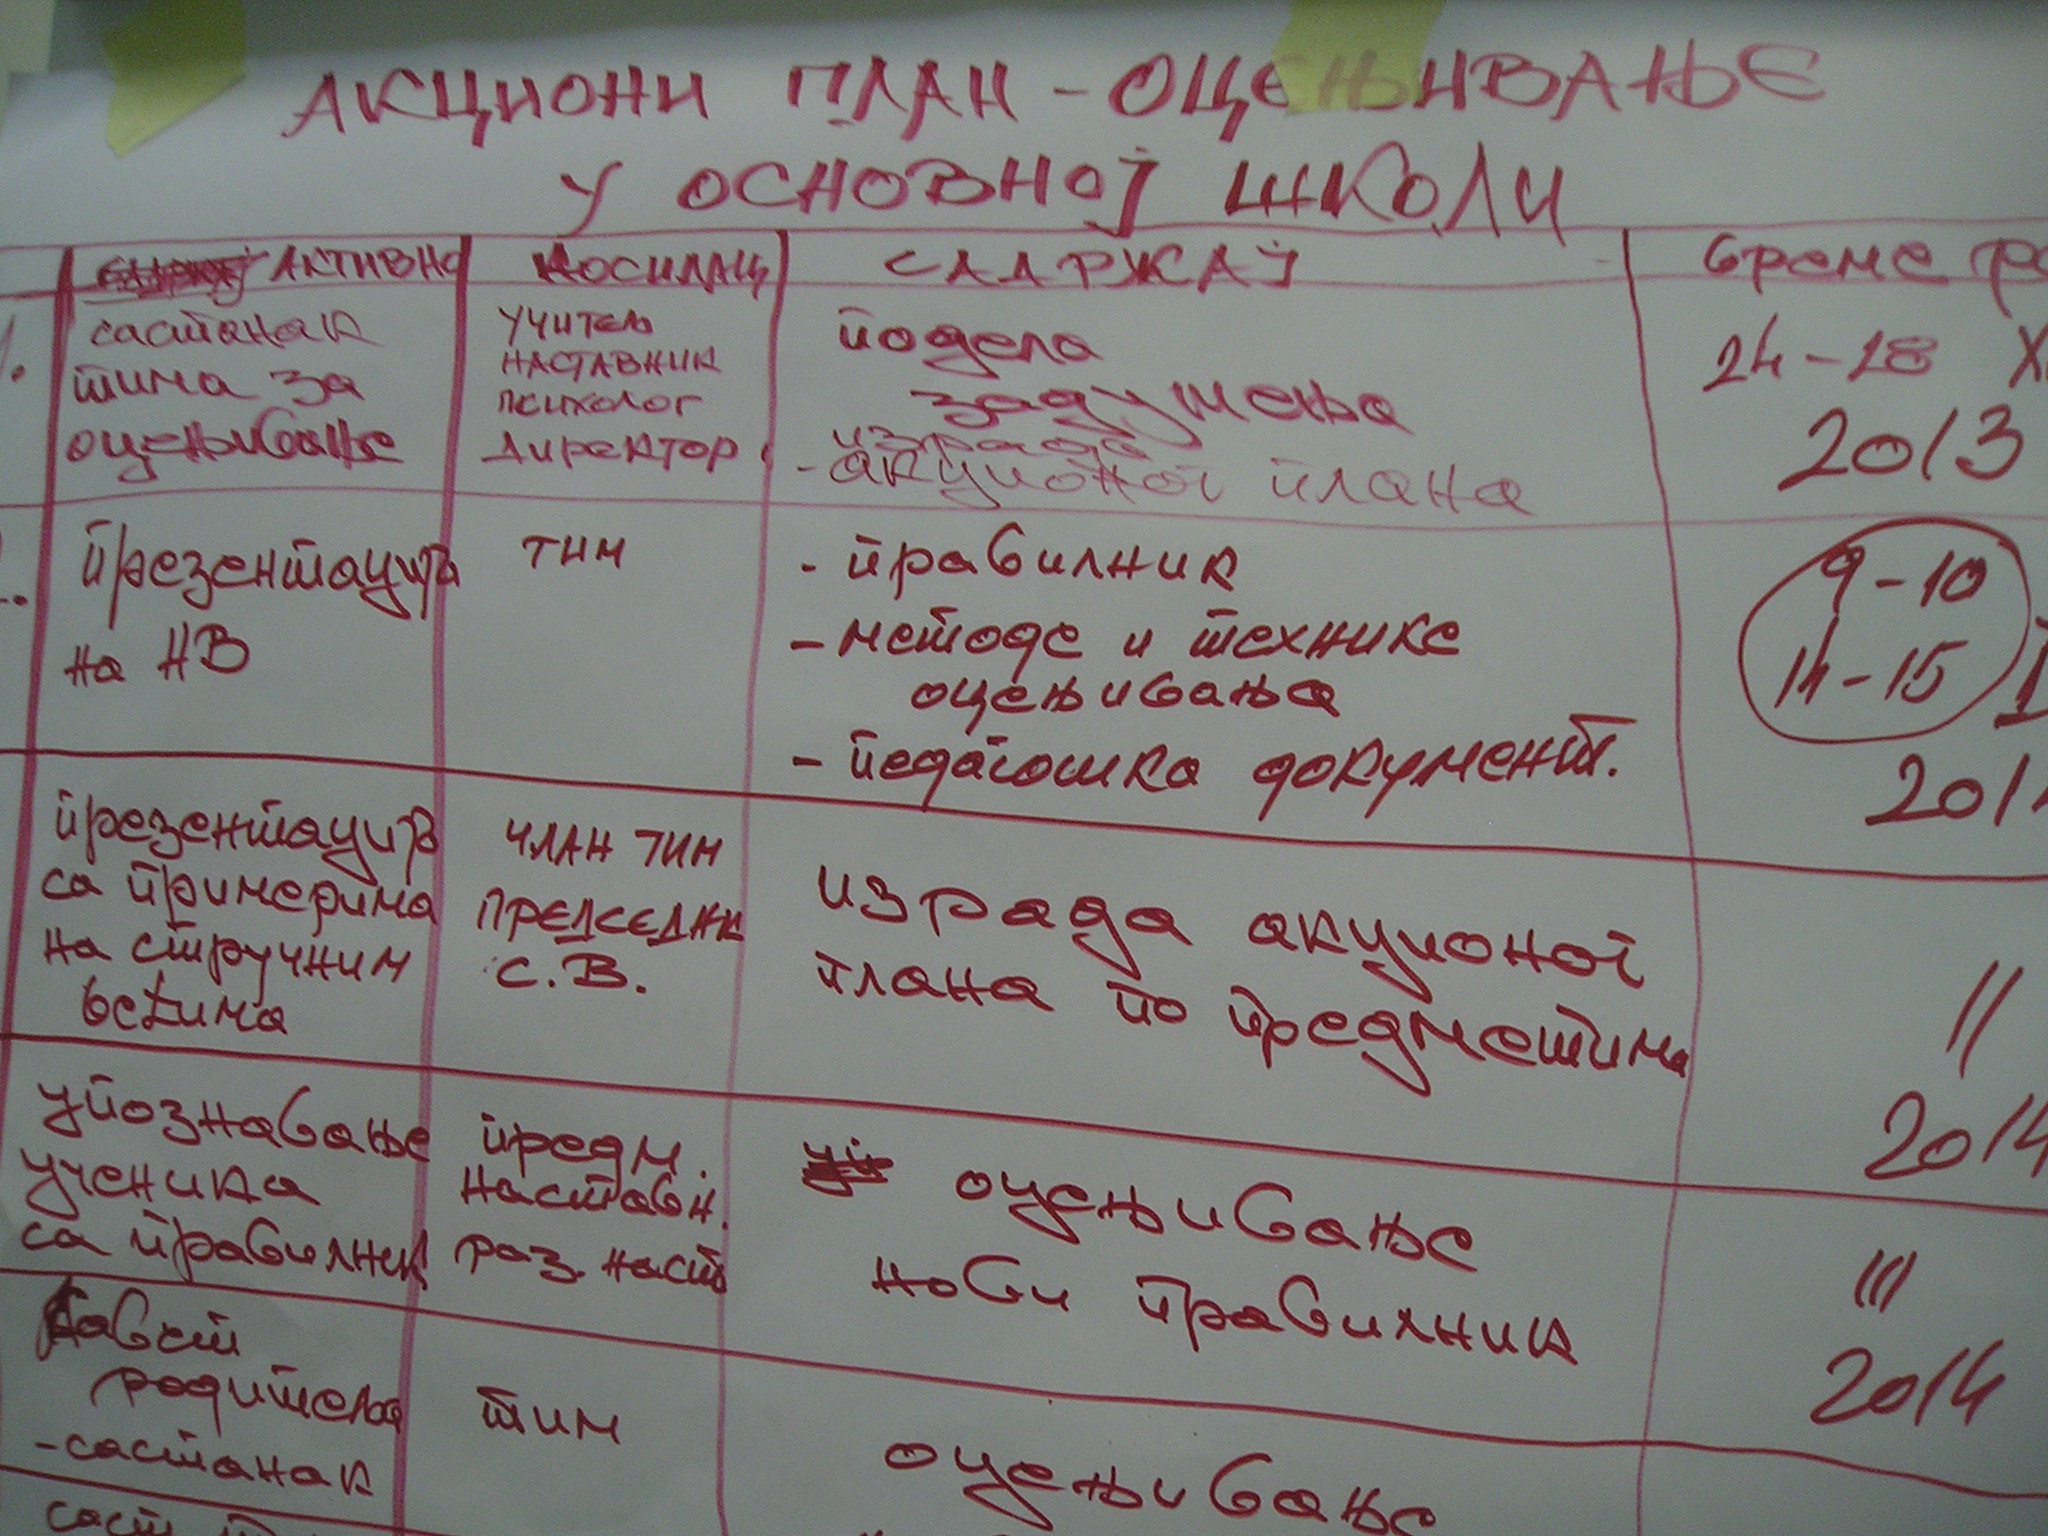 АКЦИОНИ ПЛАН - ОЦЕЊИВАЊЕ
У ОСНОВНОЈ ШКОЛИ
АКТИВНО
НОСИЛАЦ
САДРЖАЈ
време
1.
састанак
тима за
оцењивање
УЧИТЕЉ
НАСТАВНИК
ПСИХОЛОГ
ДИРЕКТОР
подела
задужења
израда
- акционог плана
24-28
2013
презентација
на НВ
ТИМ
- правилник
- методе и технике
оцењивања
- педагошка документ.
9-10
14-15
201
презентациј
са примерима
на стручним
већима
ЧЛАН ТИМ
ПРЕДСЕДНИК
С.В.
израда акционог
плана по предметима
II
2014
упознавање
ученика
са правилник
предм.
наставн.
раз. наст
оцењивање
нови правилник
III
2014
Савет
родитеља
- састанак
тим
оцењивање
саст